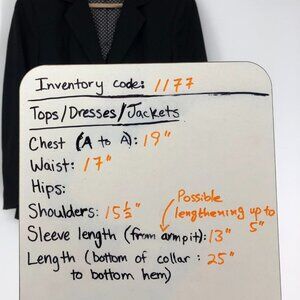 Inventory code: 1177
Tops/Dresses/Jackets
Chest (A to A): 19"
Waist: 17"
Hips:
Shoulders: 15 1/2"
Possible
lengthening up to
5"
Sleeve length (from armpit): 13"
Length (bottom of collar : 25"
to bottom hem)